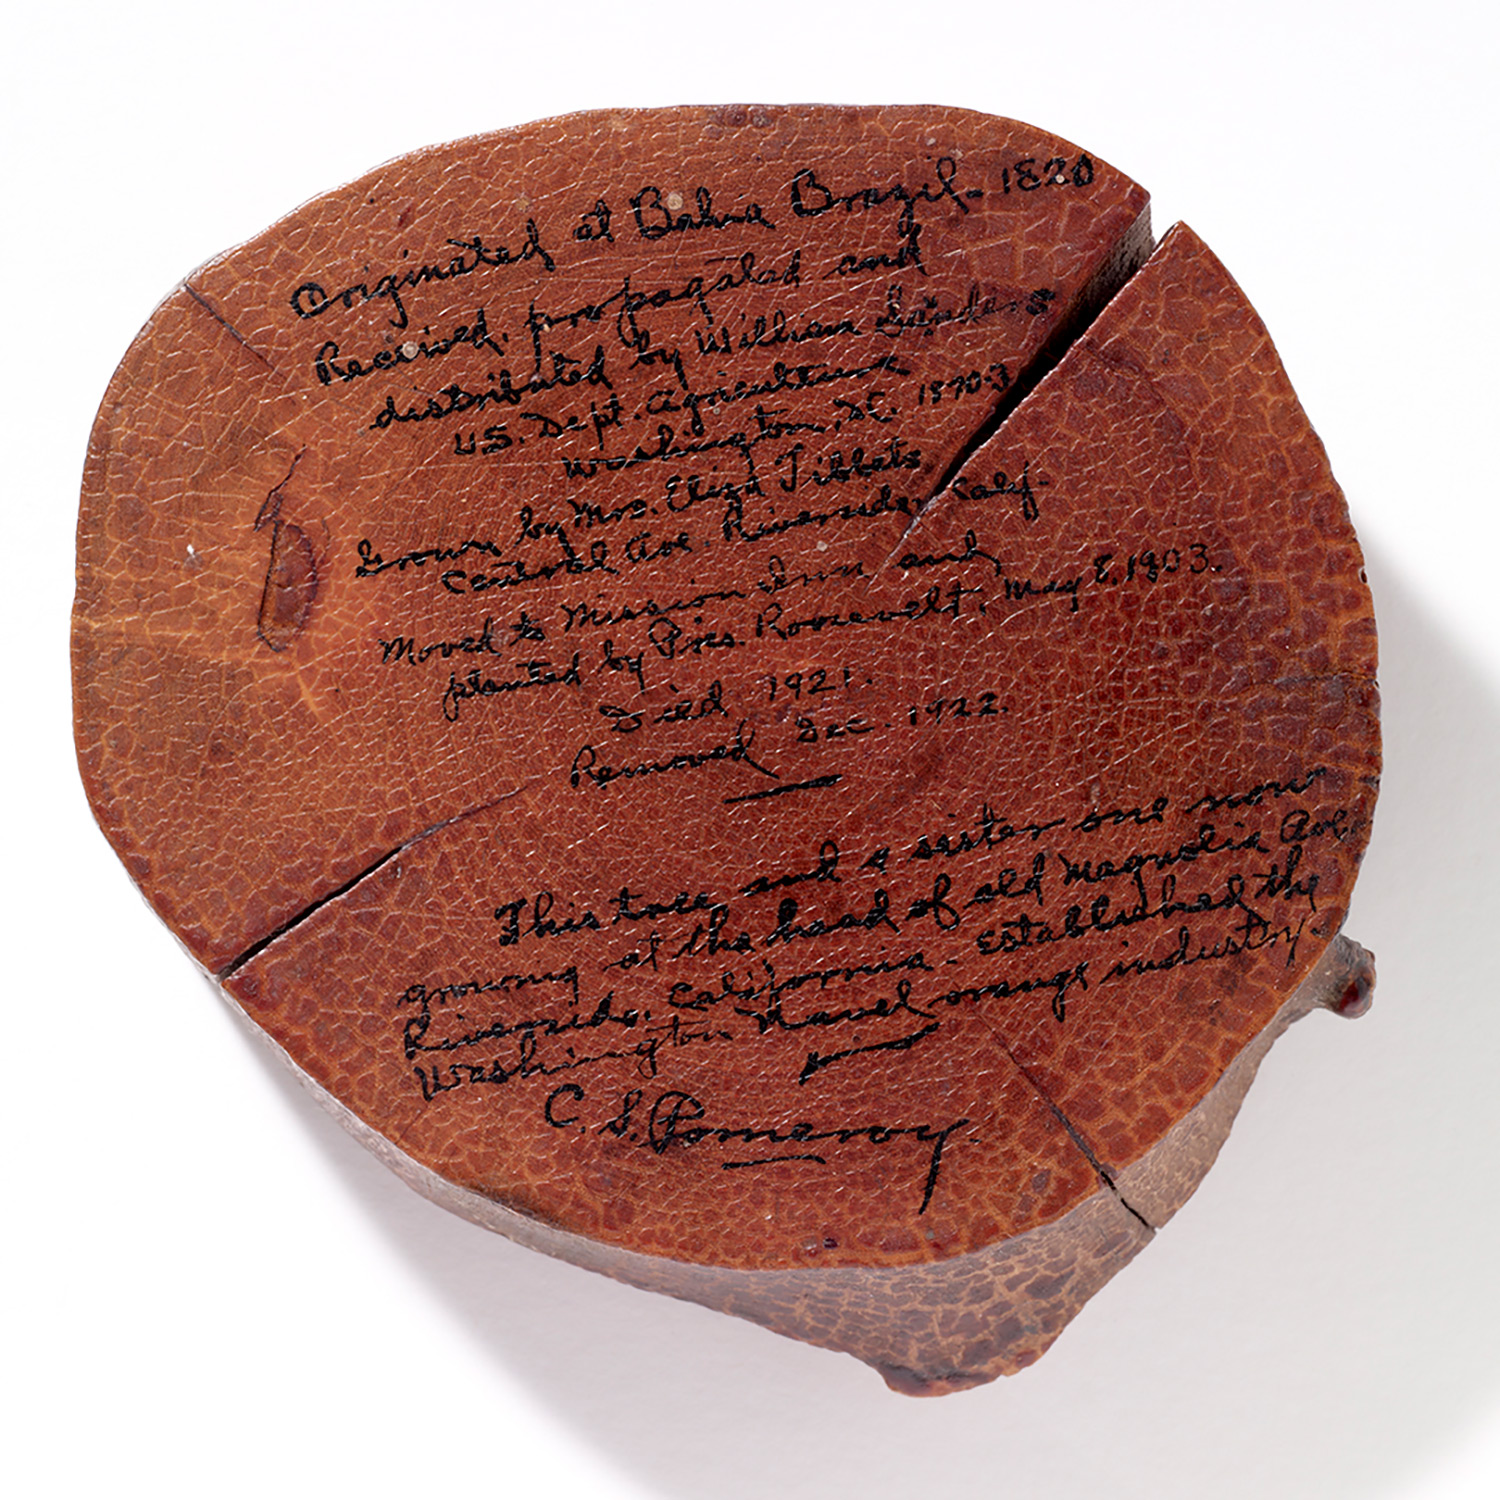 Originated at Bahia Brazil - 1820
Received, propagated and
distributed by William Saunders
U.S. Dept. Agriculture
Washington, D.C. 1870-3
Grown by Mrs. Eliza Tibbets
Central Ave. Riverside, Calif.
Moved to Mission Inn and
planted by Pres. Roosevelt, May 8, 1903.
Died 1921.
Removed Dec. 1922.
This tree and a sister one now
growing at the head of old Magnolia Ave.
Riverside, California - established the
Washington Navel orange industry.
C. S. Pomeroy.